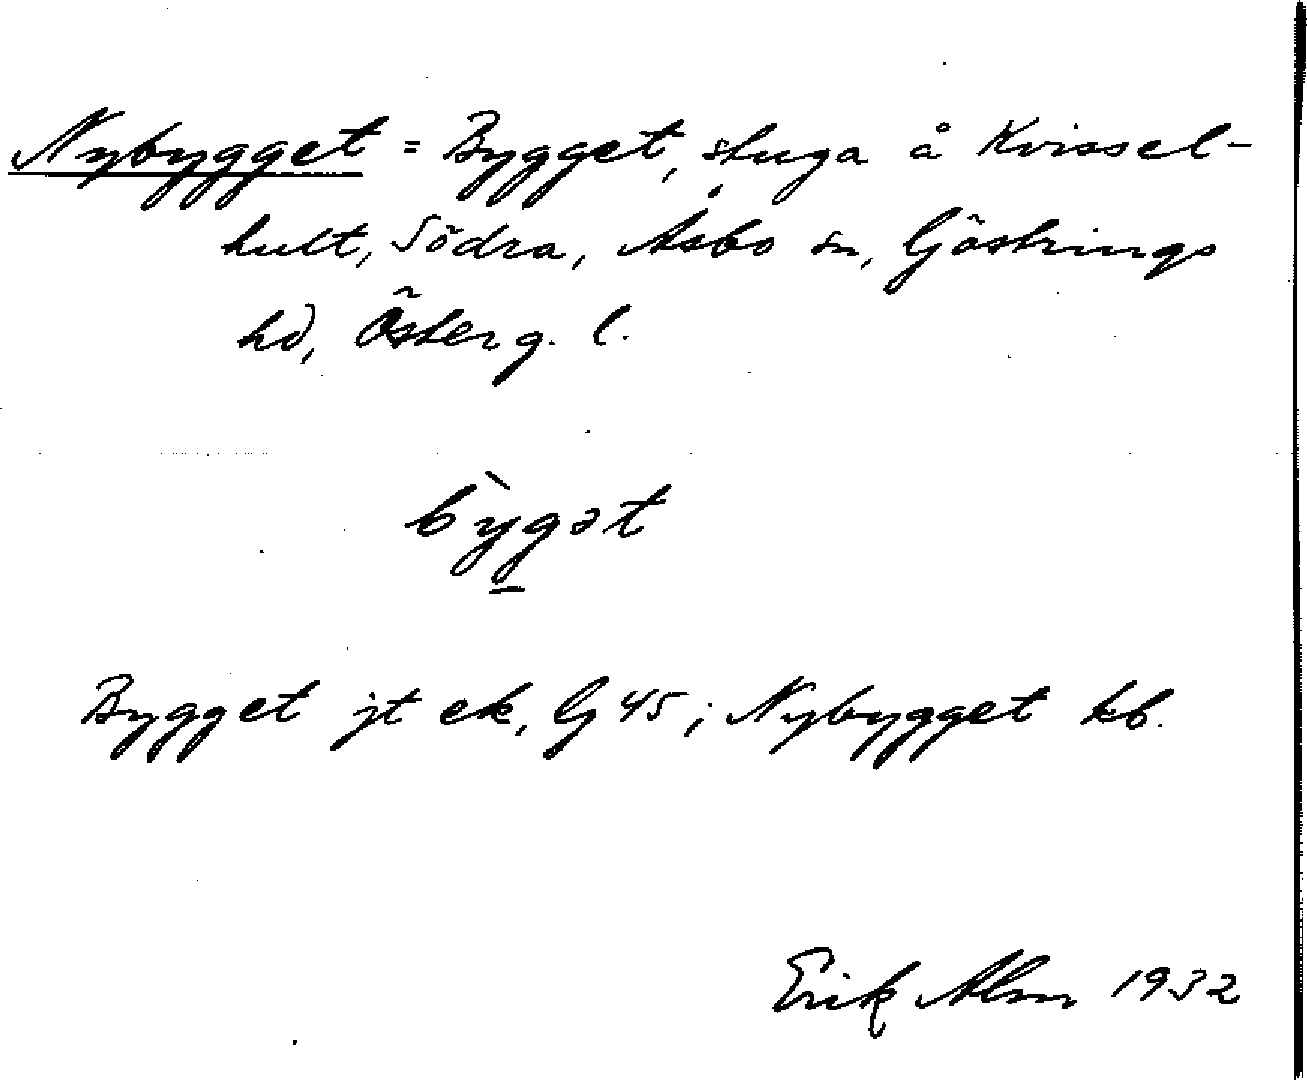 Nybygget = Bygget, stuga å Kvissel-
hult, Södra, Åsbo sn, Göstrings
hd, Österg. l.
bỳgət
Bygget jt ek, G 45; Nybygget kb.
Erik Alm 1932